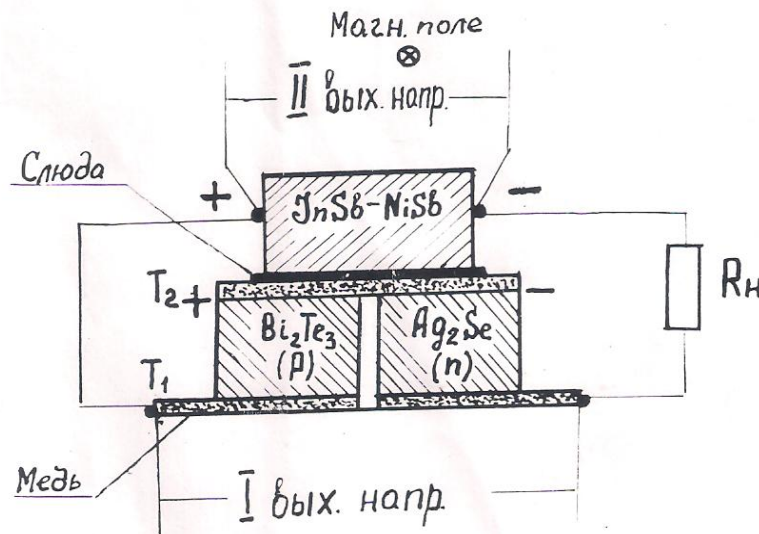 Магн. поле
II вых. напр.
Слюда
+
−
InSb-NiSb
T2
+
−
Rн
Bi2Te3
(p)
Ag2Se
(n)
T1
Медь
I вых. напр.